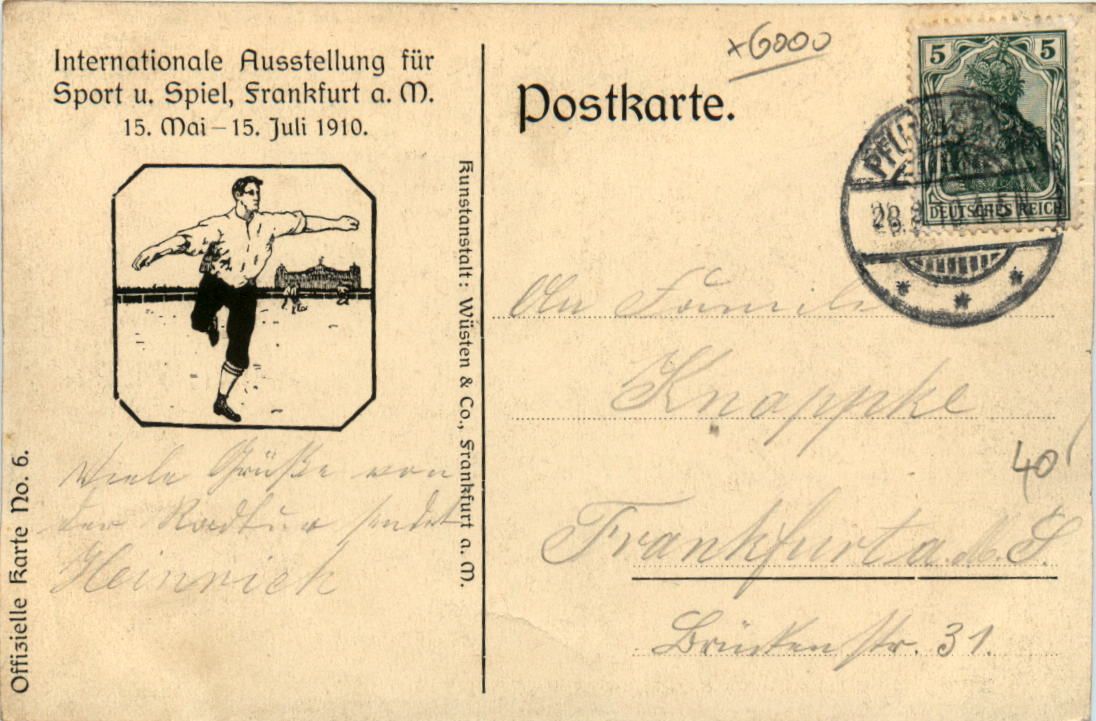 Internationale Ausstellung für
Sport u. Spiel, Frankfurt a. M.
15. Mai – 15. Juli 1910.
Viele Grüße von
der Radtur sendet
Heinrich
Offizielle Karte No. 6.
Kunstanstalt: Wüsten & Co., Frankfurt a. M.
x6000
Postkarte.
5 5
DEUTSCHES REICH
28.
An Familie
Knappke
40
Frankfurt a. M. S.
Brückenstr. 31.